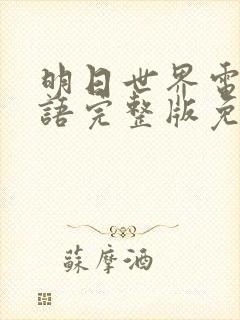 明日世界電
語完整版免
蘇摩酒